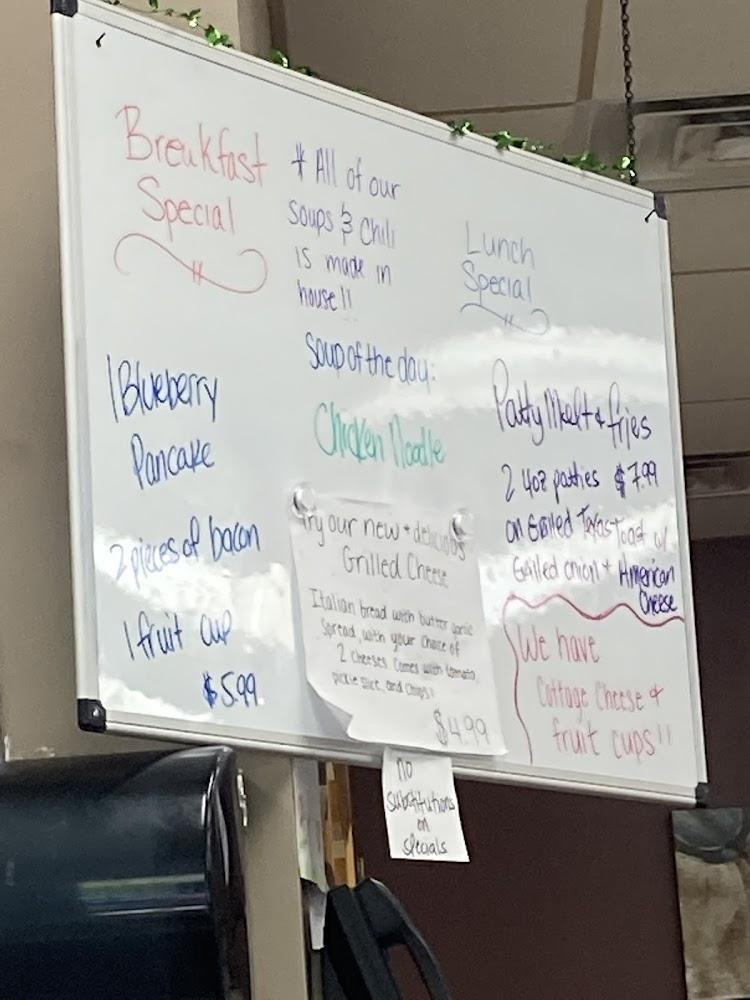 Breakfast
Special
1 Blueberry
Pancake
2 pieces of bacon
1 fruit cup
$5.99
* All of our
Soups & Chili
is made in
house!!
Soup of the day:
Chicken Noodle
Try our new + delicious
Grilled Cheese
Italian bread with butter garlic
spread, with your choice of
2 cheeses comes with tomato,
pickle slice, and chips!
$4.99
no
substitutions
on
specials
Lunch
Special
Patty Melt + fries
2 4oz patties $7.99
on Grilled Texas Toast w/
Grilled onion + American
Cheese
We have
Cottage Cheese +
fruit cups!!